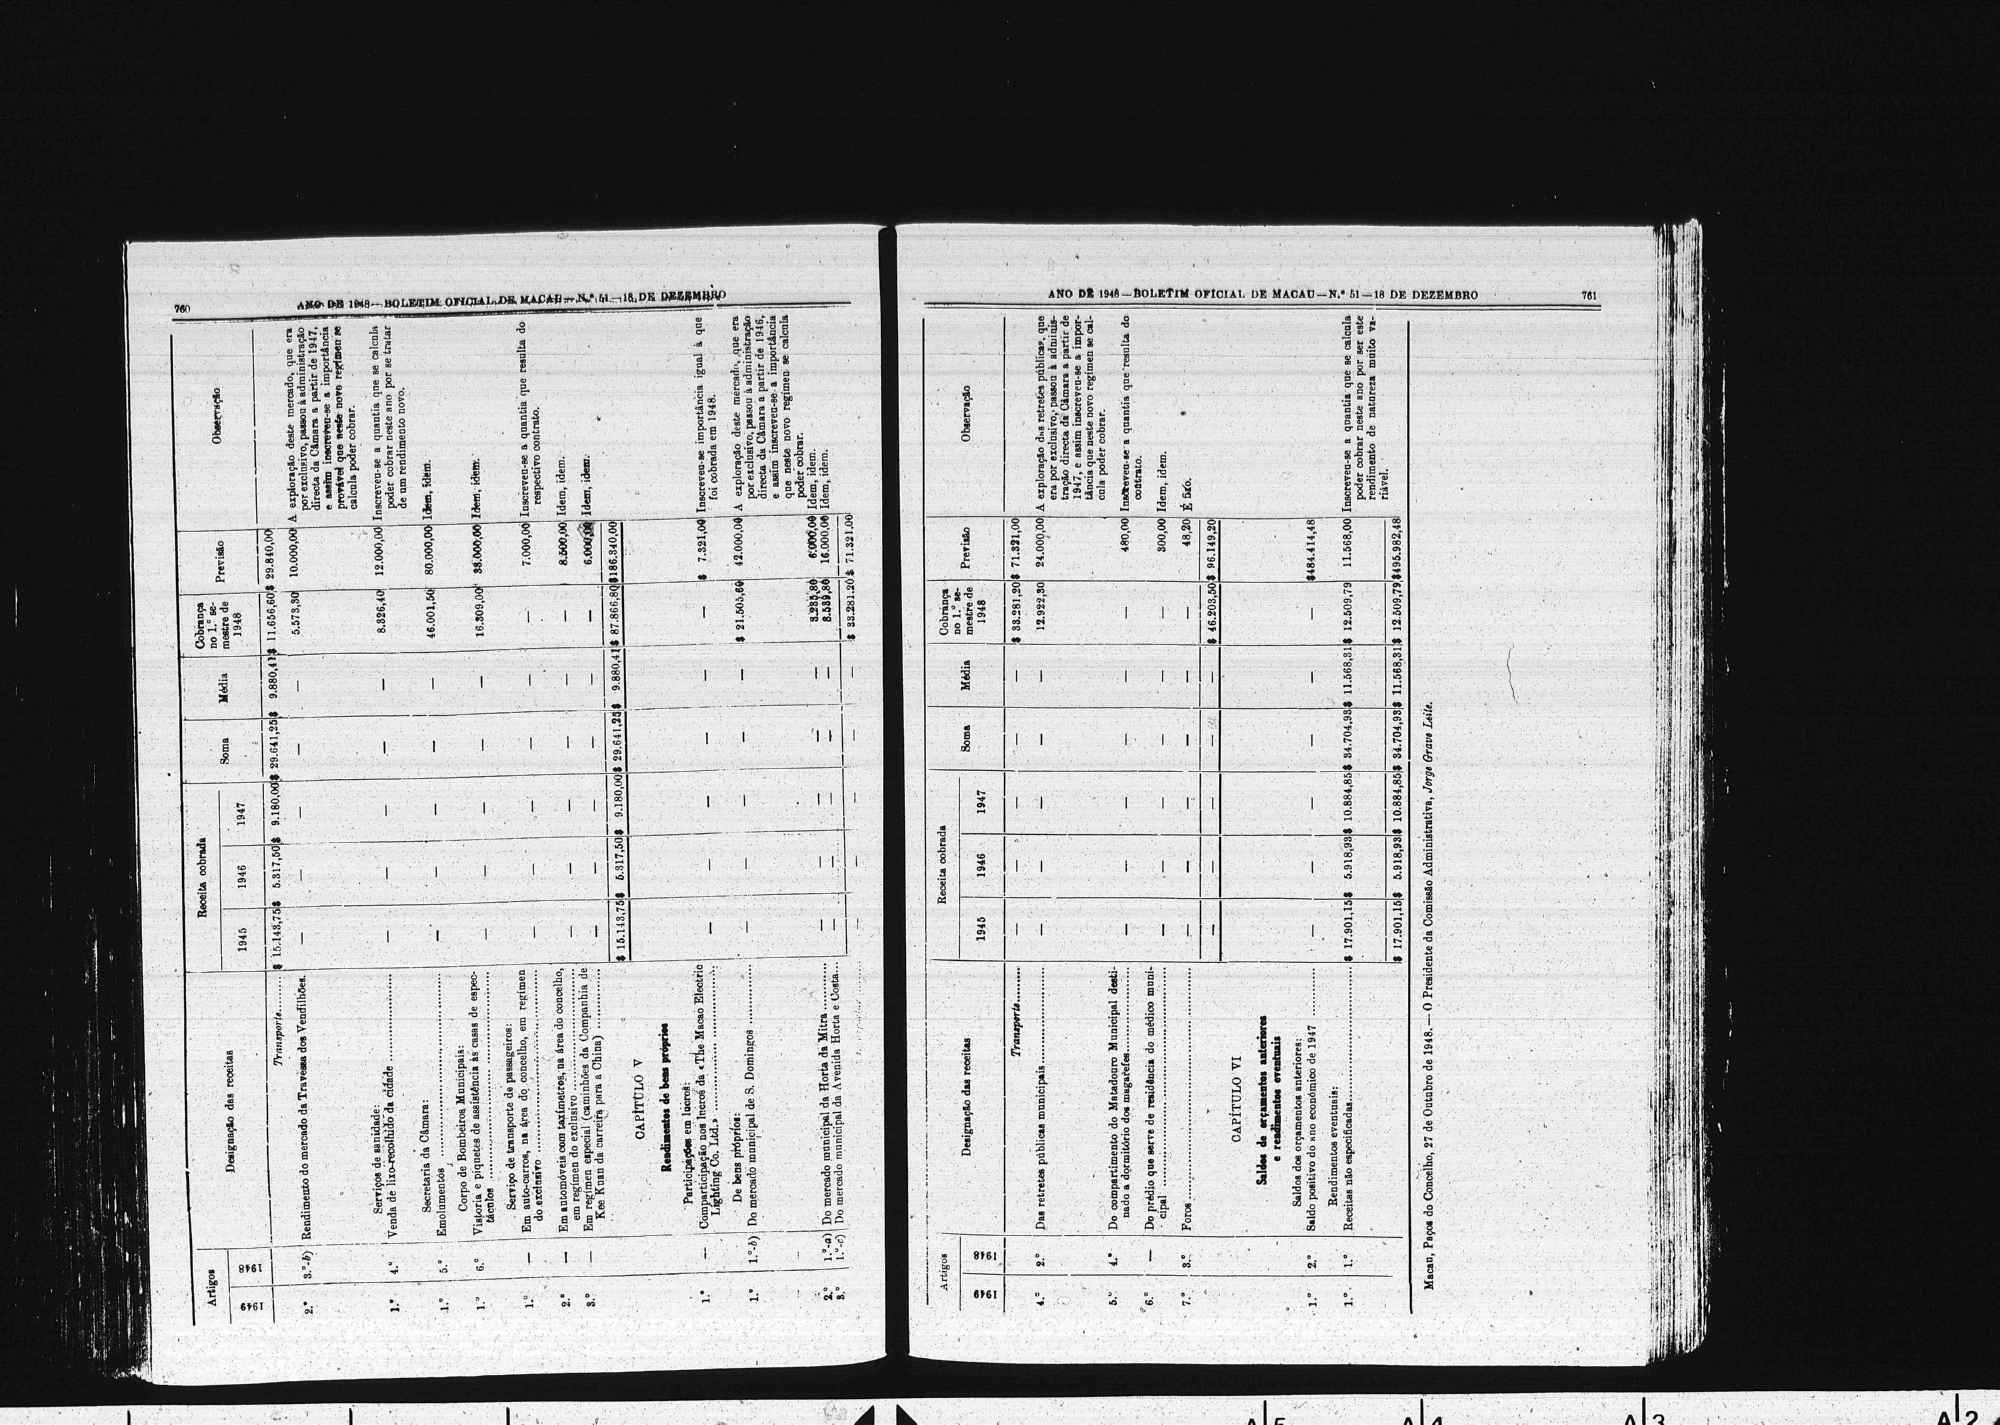 760
ANO DE 1948—BOLETIM OFICIAL DE MACAU—N.º 51—18 DE DEZEMBRO
Artigos | Designação das receitas | Receita cobrada | Soma | Média | Cobrança no 1.º semestre de 1948 | Previsão | Observação
1949 | 1948 | 1945 | 1946 | 1947
Transporte........ $ 15.143,75 $ 5.317,50 $ 9.180,00 $ 29.641,25 $ 9.880,41 $ 11.656,60 $ 29.840,00
2.º 3.º-b) Rendimento do mercado da Travessa dos Vendilhões. — — — — — 5.573,30 10.000,00 A exploração deste mercado, que era
por exclusivo, passou à administração
directa da Câmara a partir de 1947,
e assim inscreveu-se a importância
provável que neste novo regimen se
calcula poder cobrar.
Serviços de sanidade:
1.º 4.º Venda de lixo-recolhido da cidade ........ — — — — — 8.326,40 12.000,00 Inscreveu-se a quantia que se calcula
poder cobrar neste ano por se tratar
de um rendimento novo.
Secretaria da Câmara:
1.º 5.º Emolumentos ........ — — — — — 46.001,50 80.000,00 Idem, idem.
Corpo de Bombeiros Municipais:
1.º 6.º Vistoria e piquetes de assistência às casas de espec-
táculos ........ — — — — — 16.309,00 33.000,00 Idem, idem.
Serviço de transporte de passageiros:
1.º — Em auto-carros, na área do concelho, em regimen
do exclusivo ........ — — — — — — 7.000,00 Inscreveu-se a quantia que resulta do
respectivo contrato.
2.º — Em automóveis com taxímetros, na área do concelho,
em regimen do exclusivo ........ — — — — — — 8.500,00 Idem, idem.
3.º — Em regimen especial (caminhões da Companhia de
Kee Kuan da carreira para a China) ........ — — — — — — 6.000,00 Idem, idem.
$ 15.143,75 $ 5.317,50 $ 9.180,00 $ 29.641,25 $ 9.880,41 $ 87.866,80 $186.340,00
CAPÍTULO V
Rendimentos de bens próprios
Participações em lucros:
1.º — Comparticipação nos lucros da «The Macao Electric
Lighting Co. Ltd.» ........ — — — — — — $ 7.321,00 Inscreveu-se importância igual à que
foi cobrada em 1948.
De bens próprios:
1.º 1.º-b) Do mercado municipal de S. Domingos ........ — — — — — $ 21.505,60 42.000,00 A exploração deste mercado, que era
por exclusivo, passou à administração
directa da Câmara a partir de 1946,
e assim inscreveu-se a importância
que neste novo regimen se calcula
poder cobrar.
2.º 1.º-a) Do mercado municipal da Horta da Mitra ........ — — — — — 3.235,80 6.000,00 Idem, idem.
3.º 1.º-c) Do mercado municipal da Avenida Horta e Costa... — — — — — 8.539,80 16.000,00 Idem, idem.
— — — — — $ 33.281,20 $ 71.321,00
ANO DE 1948—BOLETIM OFICIAL DE MACAU—N.º 51—18 DE DEZEMBRO
761
Artigos | Designação das receitas | Receita cobrada | Soma | Média | Cobrança no 1.º semestre de 1948 | Previsão | Observação
1949 | 1948 | 1945 | 1946 | 1947
Transporte........ — — — — — $ 33.281,20 $ 71.321,00
4.º 2.º Das retretes públicas municipais ........ — — — — — 12.922,30 24.000,00 A exploração das retretes públicas, que
era por exclusivo, passou à adminis-
tração directa da Câmara a partir de
1947, e assim inscreveu-se a impor-
tância que neste novo regimen se cal-
cula poder cobrar.
5.º 4.º Do compartimento do Matadouro Municipal desti-
nado a dormitório dos magarefes ........ — — — — — — 480,00 Inscreveu-se a quantia que resulta do
contrato.
6.º — Do prédio que serve de residência do médico muni-
cipal ........ — — — — — — 300,00 Idem, idem.
7.º 3.º Foros ........ — — — — — — 48,20 É fixo.
— — — — — $ 46.203,50 $ 96.149,20
CAPÍTULO VI
Saldos de orçamentos anteriores
e rendimentos eventuais
Saldos dos orçamentos anteriores:
1.º 2.º Saldo positivo do ano económico de 1947 ........ — — — — — — $484.414,48
Rendimentos eventuais:
1.º 1.º Receitas não especificadas ........ $ 17.901,15 $ 5.918,93 $ 10.884,85 $ 34.704,93 $ 11.568,31 $ 12.509,79 11.568,00 Inscreveu-se a quantia que se calcula
poder cobrar neste ano por ser este
rendimento de natureza muito va-
riável.
$ 17.901,15 $ 5.918,93 $ 10.884,85 $ 34.704,93 $ 11.568,31 $ 12.509,79 $495.982,48
Macau, Paços do Concelho, 27 de Outubro de 1948.—O Presidente da Comissão Administrativa, Jorge Grave Leite.